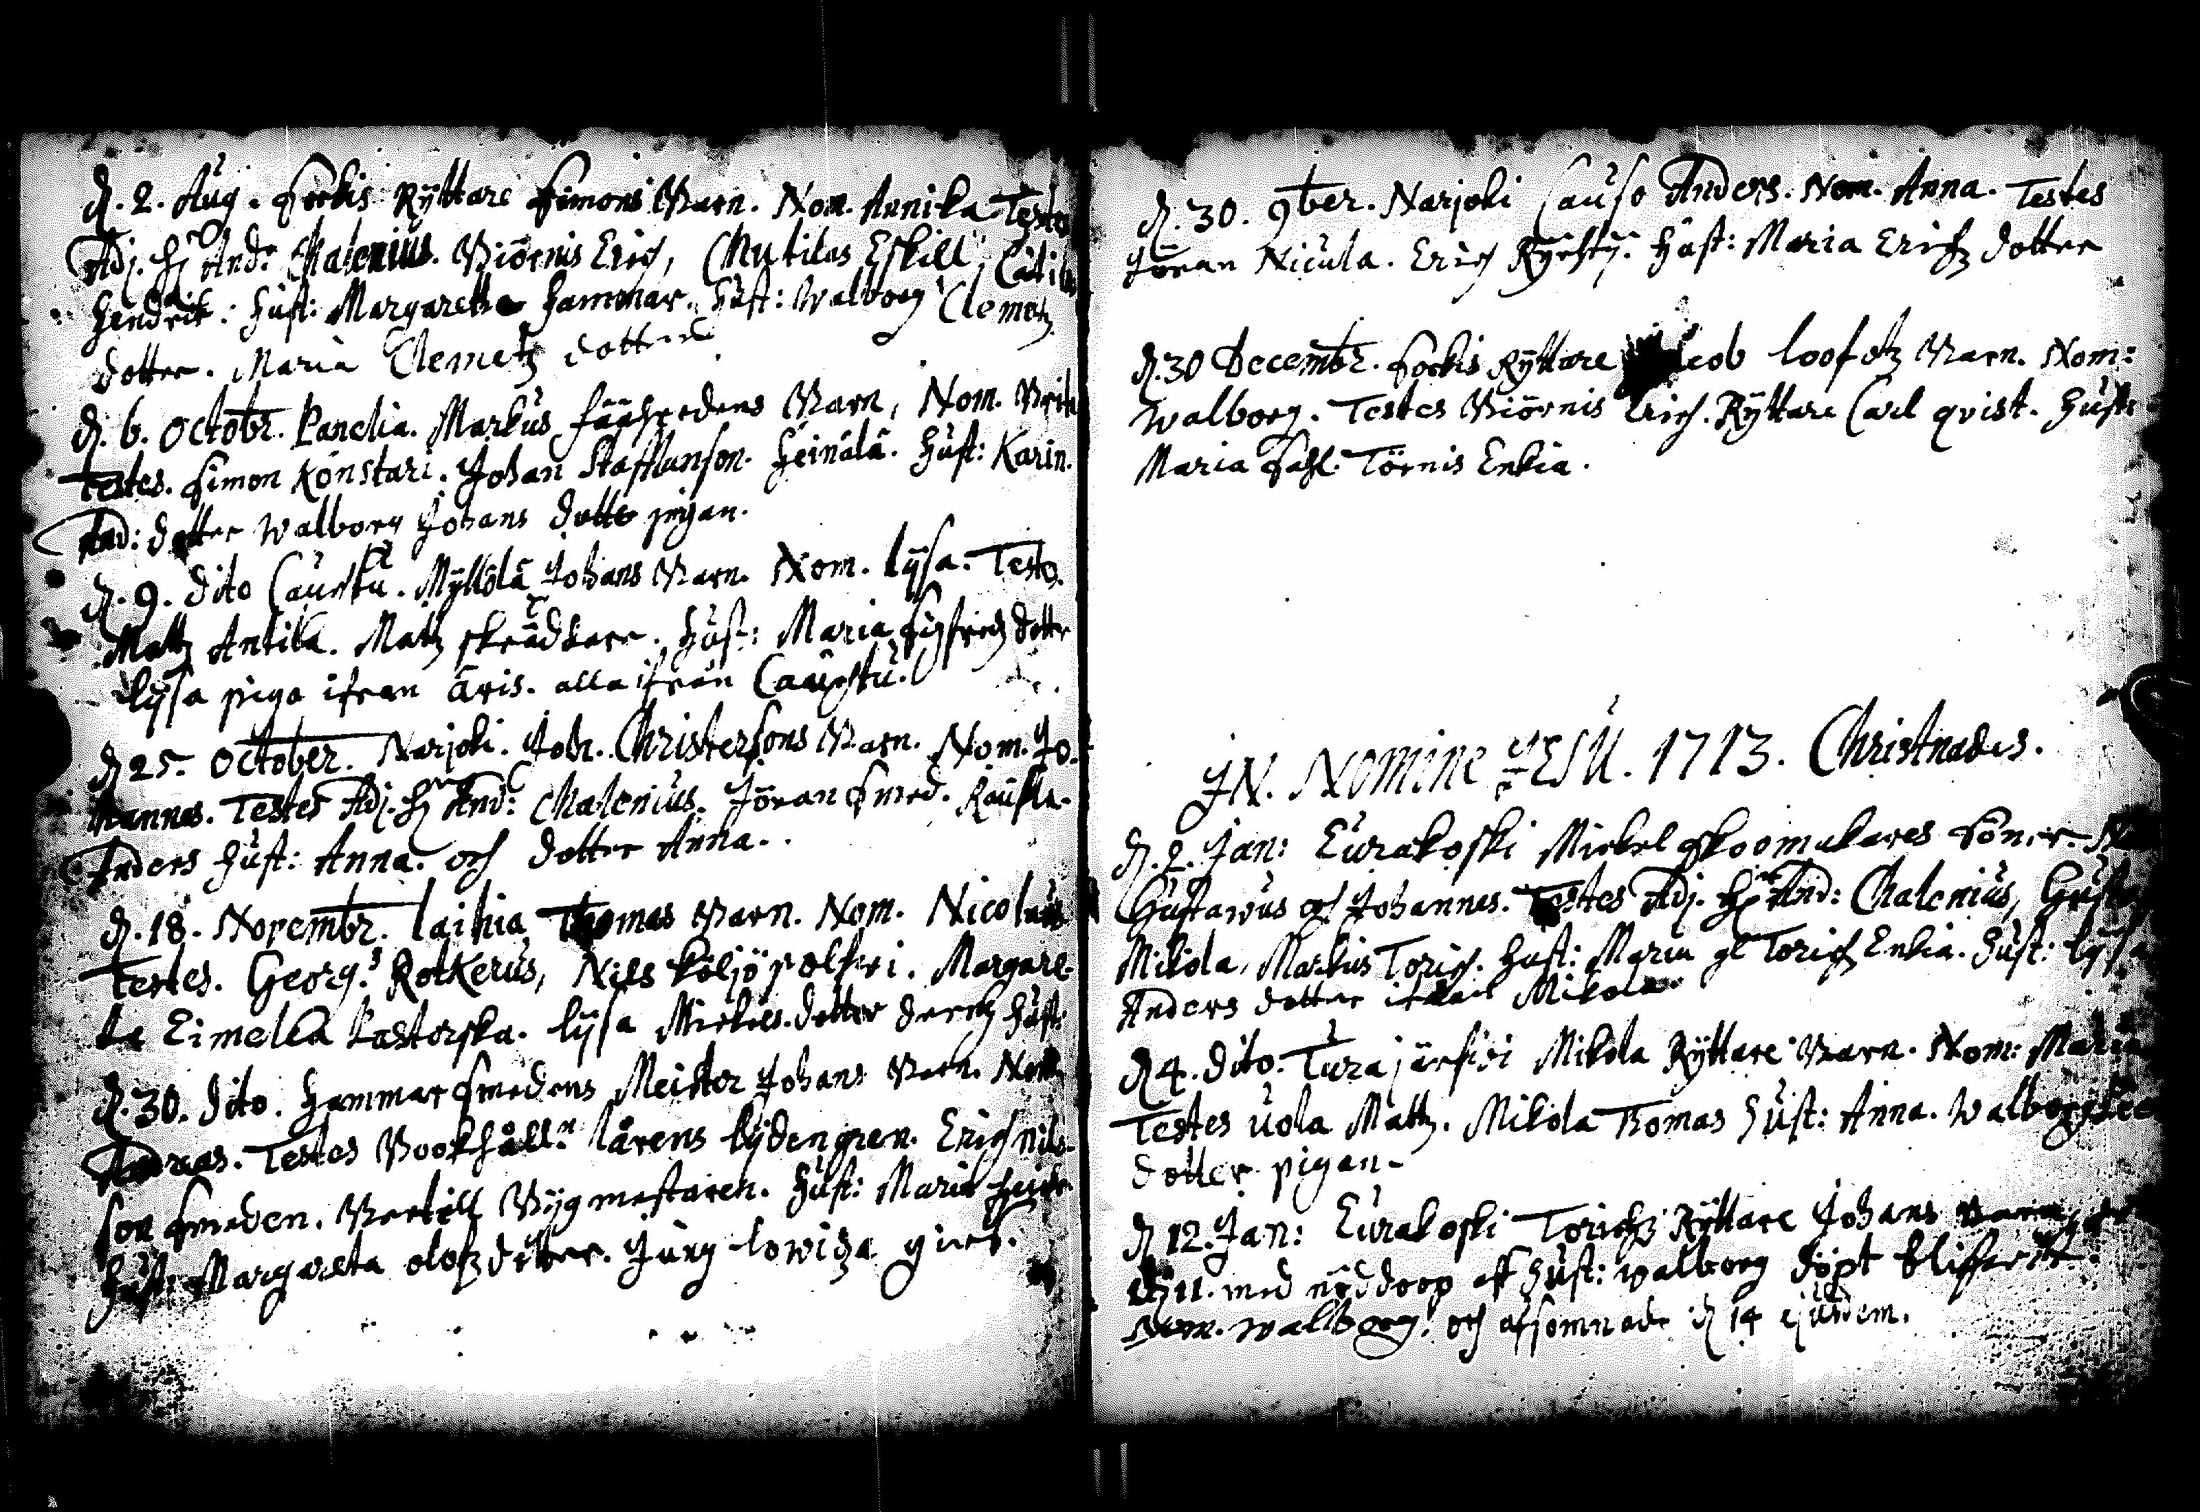 d. 2. Aug. Sorkis Ryttare Simons Barn. Nom. Annika Testes
Adj. Hr And: Chalenius. Biörnis Erich, Mutilas Eskill,
Hendrik. Hust: Margaretha Hammar. Hust: Walborg Clemetz
dotter. Maria Clemetz dotter
d. 6. Octobr. Panelia. Markus Barn, Nom. Brita
Testes. Simon Konstari. Johan Staffanson. Heinälä. Hust: Karin
And: dotter Walborg Johans dotter pigan.
d. 9. dito Cauttu. Myllölä Johans Barn. Nom. lysa. Testes
Mattz Antila. Mattz skräddare. Hust: Maria Sigfredz dotter
lysa piga ifrån äris. alla ifrån Cauttu.
d 25. October. Narjoki. Joh. Christersons Barn. Nom. Jo-
hannes. Testes Adj. Hr And: Chalenius. Jöran Smed.
Anders Hust: Anna. och dotter Anna.
d. 18. Novembr. laihia Thomas Barn. Nom. Nicolaus
Testes. Georg: Rotkerus, Nils Köljöpolferi. Margare-
ta Eimelea Pastorska. lysa Mickels dotter Hust:
d. 30. dito. Hammarsmedens Meister Johans Barn. Nom.
Andreas. Testes Bookhåll:n lårens lydengren. Erich Nils-
son Smeden. Bertill Bygmestaren. Hust: Maria
Hust: Margareta olofzdotter. Jung lowisa
d. 30. 9ber. Narjoki Causo Anders. Nom. Anna. Testes
Jöran Nicula. Erich Hust: Maria Erichz dotter
d. 30 Decembr. Sorkis Ryttare Jacob loofotz Barn. Nom:
Walborg. Testes Biörnis Erich. Ryttare Carl qvist. Hust:
Maria Törnis Enkia.
JN. Nomine JESU. 1713. Christnades.
d. 2. Jan: Eurakoski Mickel skoomakares Söner.
Gustavus och Johannes. Testes Adj. Hr And: Chalenius,
Mikola, Markus Torich. Hust: Maria gl Torich Enkia. Hust: lysa
Anders dotter ifrån Mikola
d 4. dito. Turajärfwi Mikola Ryttare Barn. Nom: Maria
Testes Uola Mattz. Mikola Thomas Hust: Anna. Walborg
dotter pigan.
d 12. Jan: Eurakoski Torichz Ryttare Johans Barn
d 11. med nöddoop aff Hust: Walborg döpt
Nom. Walborg: och afsomnade d 14 ejusdem.